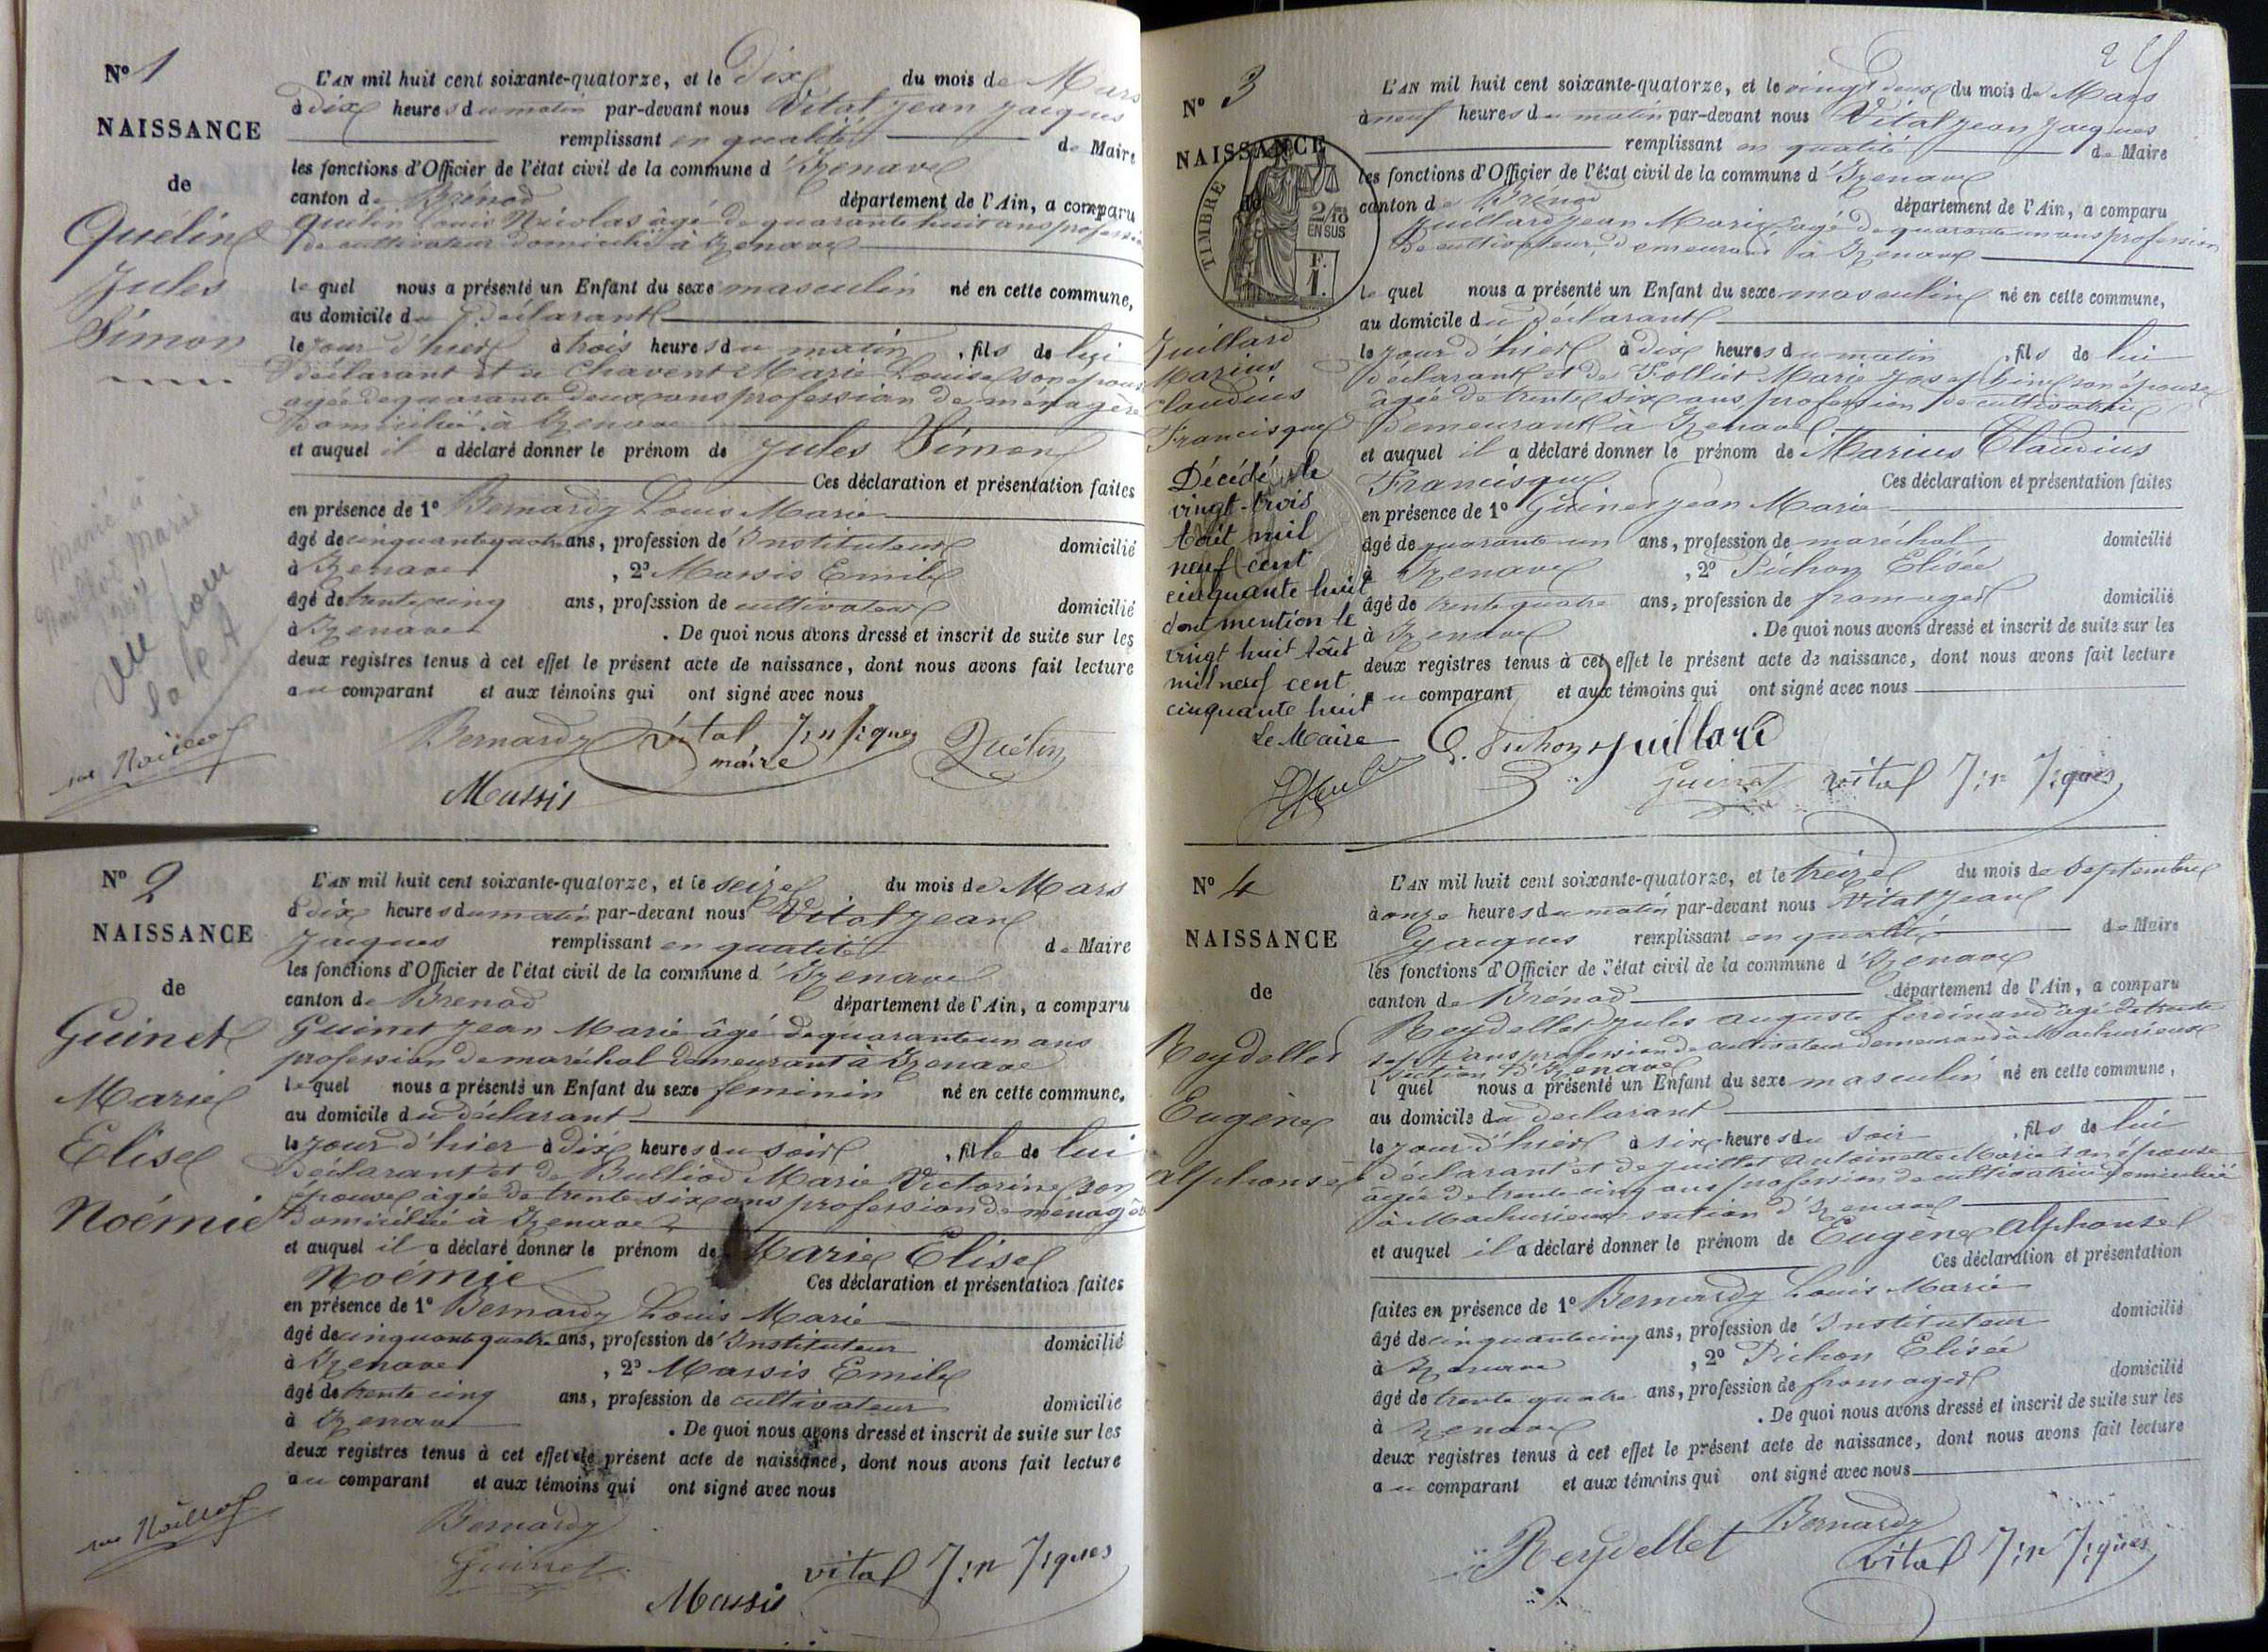 N° 1
NAISSANCE
de
Quélin
Jules
Simon
L'AN mil huit cent soixante-quatorze, et le dix du mois de Mars
à dix heures du matin par-devant nous Vital Jean Jacques
remplissant en qualité de Maire
les fonctions d'Officier de l'état civil de la commune d'Izenave
canton de Brénod département de l'Ain, a comparu
Quélin Louis Nicolas âgé de quarante huit ans profession
de cultivateur domicilié à Izenave
lequel nous a présenté un Enfant du sexe masculin né en cette commune,
au domicile du déclarant
le jour d'hier à trois heures du matin, fils de lui
déclarant et de Chavent Marie Louise son épouse
agée de quarante deux ans profession de ménagère
domiciliée à Izenave
et auquel il a déclaré donner le prénom de Jules Simon
Ces déclaration et présentation faites
en présence de 1° Bernardy Louis Marie
âgé de cinquante quatre ans, profession de Instituteur domicilié
à Izenave, 2° Massis Emile
âgé de trente cinq ans, profession de cultivateur domicilié
à Izenave. De quoi nous avons dressé et inscrit de suite sur les
deux registres tenus à cet effet le présent acte de naissance, dont nous avons fait lecture
au comparant et aux témoins qui ont signé avec nous
Bernardy Vital Jn Jques Quélin
maire
Massis
marié à
Marie
Vu pour
N° 2
NAISSANCE
de
Guinet
Marie
Elise
Noémie
L'AN mil huit cent soixante-quatorze, et le seize du mois de Mars
à dix heures du matin par-devant nous Vital Jean
Jacques remplissant en qualité de Maire
les fonctions d'Officier de l'état civil de la commune d'Izenave
canton de Brenod département de l'Ain, a comparu
Guinet Jean Marie âgé de quarante un ans
profession de maréchal demeurant à Izenave
lequel nous a présenté un Enfant du sexe feminin né en cette commune,
au domicile du déclarant
le jour d'hier à dix heures du soir, fille de lui
déclarant et de Bulliod Marie Victorine son
épouse âgée de trente six ans profession de ménagère
domiciliée à Izenave
et auquel il a déclaré donner le prénom de Marie Elise
Noémie Ces déclaration et présentation faites
en présence de 1° Bernardy Louis Marie
âgé de cinquante quatre ans, profession de Instituteur domicilié
à Izenave, 2° Massis Emile
âgé de trente cinq ans, profession de cultivateur domicilié
à Izenave. De quoi nous avons dressé et inscrit de suite sur les
deux registres tenus à cet effet le présent acte de naissance, dont nous avons fait lecture
au comparant et aux témoins qui ont signé avec nous
Bernardy
Guinet
vital J:n J:ques
Massis
N° 3
NAISSANCE
TIMBRE
2/10
EN SUS
F.
1.
Juillard
Marius
Claudius
Francisque
Décédé le
vingt-trois
Août mil
neuf cent
cinquante huit
dont mention le
vingt huit Août
mil neuf cent
cinquante huit
Le Maire
L'AN mil huit cent soixante-quatorze, et le vingt deux du mois de Mars
à neuf heures du matin par-devant nous Vital Jean Jacques
remplissant en qualité de Maire
les fonctions d'Officier de l'état civil de la commune d'Izenave
canton de Brénod département de l'Ain, a comparu
Juillard Jean Marie âgé de quarante un ans profession
de cultivateur, demeurant à Izenave
lequel nous a présenté un Enfant du sexe masculin né en cette commune,
au domicile du déclarant
le jour d'hier à dix heures du matin, fils de lui
déclarant et de Folliet Marie Josephine son épouse
âgée de trente six ans profession de cultivatrice
demeurant à Izenave
et auquel il a déclaré donner le prénom de Marius Claudius
Francisque Ces déclaration et présentation faites
en présence de 1° Guinet Jean Marie
âgé de quarante un ans, profession de maréchal domicilié
à Izenave, 2° Pichon Elisée
âgé de trente quatre ans, profession de fromager domicilié
à Izenave. De quoi nous avons dressé et inscrit de suite sur les
deux registres tenus à cet effet le présent acte de naissance, dont nous avons fait lecture
au comparant et aux témoins qui ont signé avec nous
E. Pichon Juillard
Guinet vital J:n J:ques
N° 4
NAISSANCE
de
Reydellet
Eugène
Alphonse
L'AN mil huit cent soixante-quatorze, et le treize du mois de Septembre
à onze heures du matin par-devant nous Vital Jean
Jacques remplissant en qualité de Maire
les fonctions d'Officier de l'état civil de la commune d'Izenave
canton de Brénod département de l'Ain, a comparu
Reydellet Jules Auguste Ferdinand âgé de trente
sept ans profession de cultivateur demeurant à Machurieux
section d'Izenave
lquel nous a présenté un Enfant du sexe masculin né en cette commune,
au domicile du déclarant
le jour d'hier à six heures du soir, fils de lui
déclarant et de Juillet Antoinette Marie son épouse
âgée de trente cinq ans profession de cultivatrice domiciliée
à Machurieux section d'Izenave
et auquel il a déclaré donner le prénom de Eugène Alphonse
Ces déclaration et présentation
faites en présence de 1° Bernardy Louis Marie
âgé de cinquante cinq ans, profession de Instituteur domicilié
à Izenave, 2° Pichon Elisée
âgé de trente quatre ans, profession de fromager domicilié
à Izenave. De quoi nous avons dressé et inscrit de suite sur les
deux registres tenus à cet effet le présent acte de naissance, dont nous avons fait lecture
au comparant et aux témoins qui ont signé avec nous
Bernardy
Reydellet vital J:n J:ques